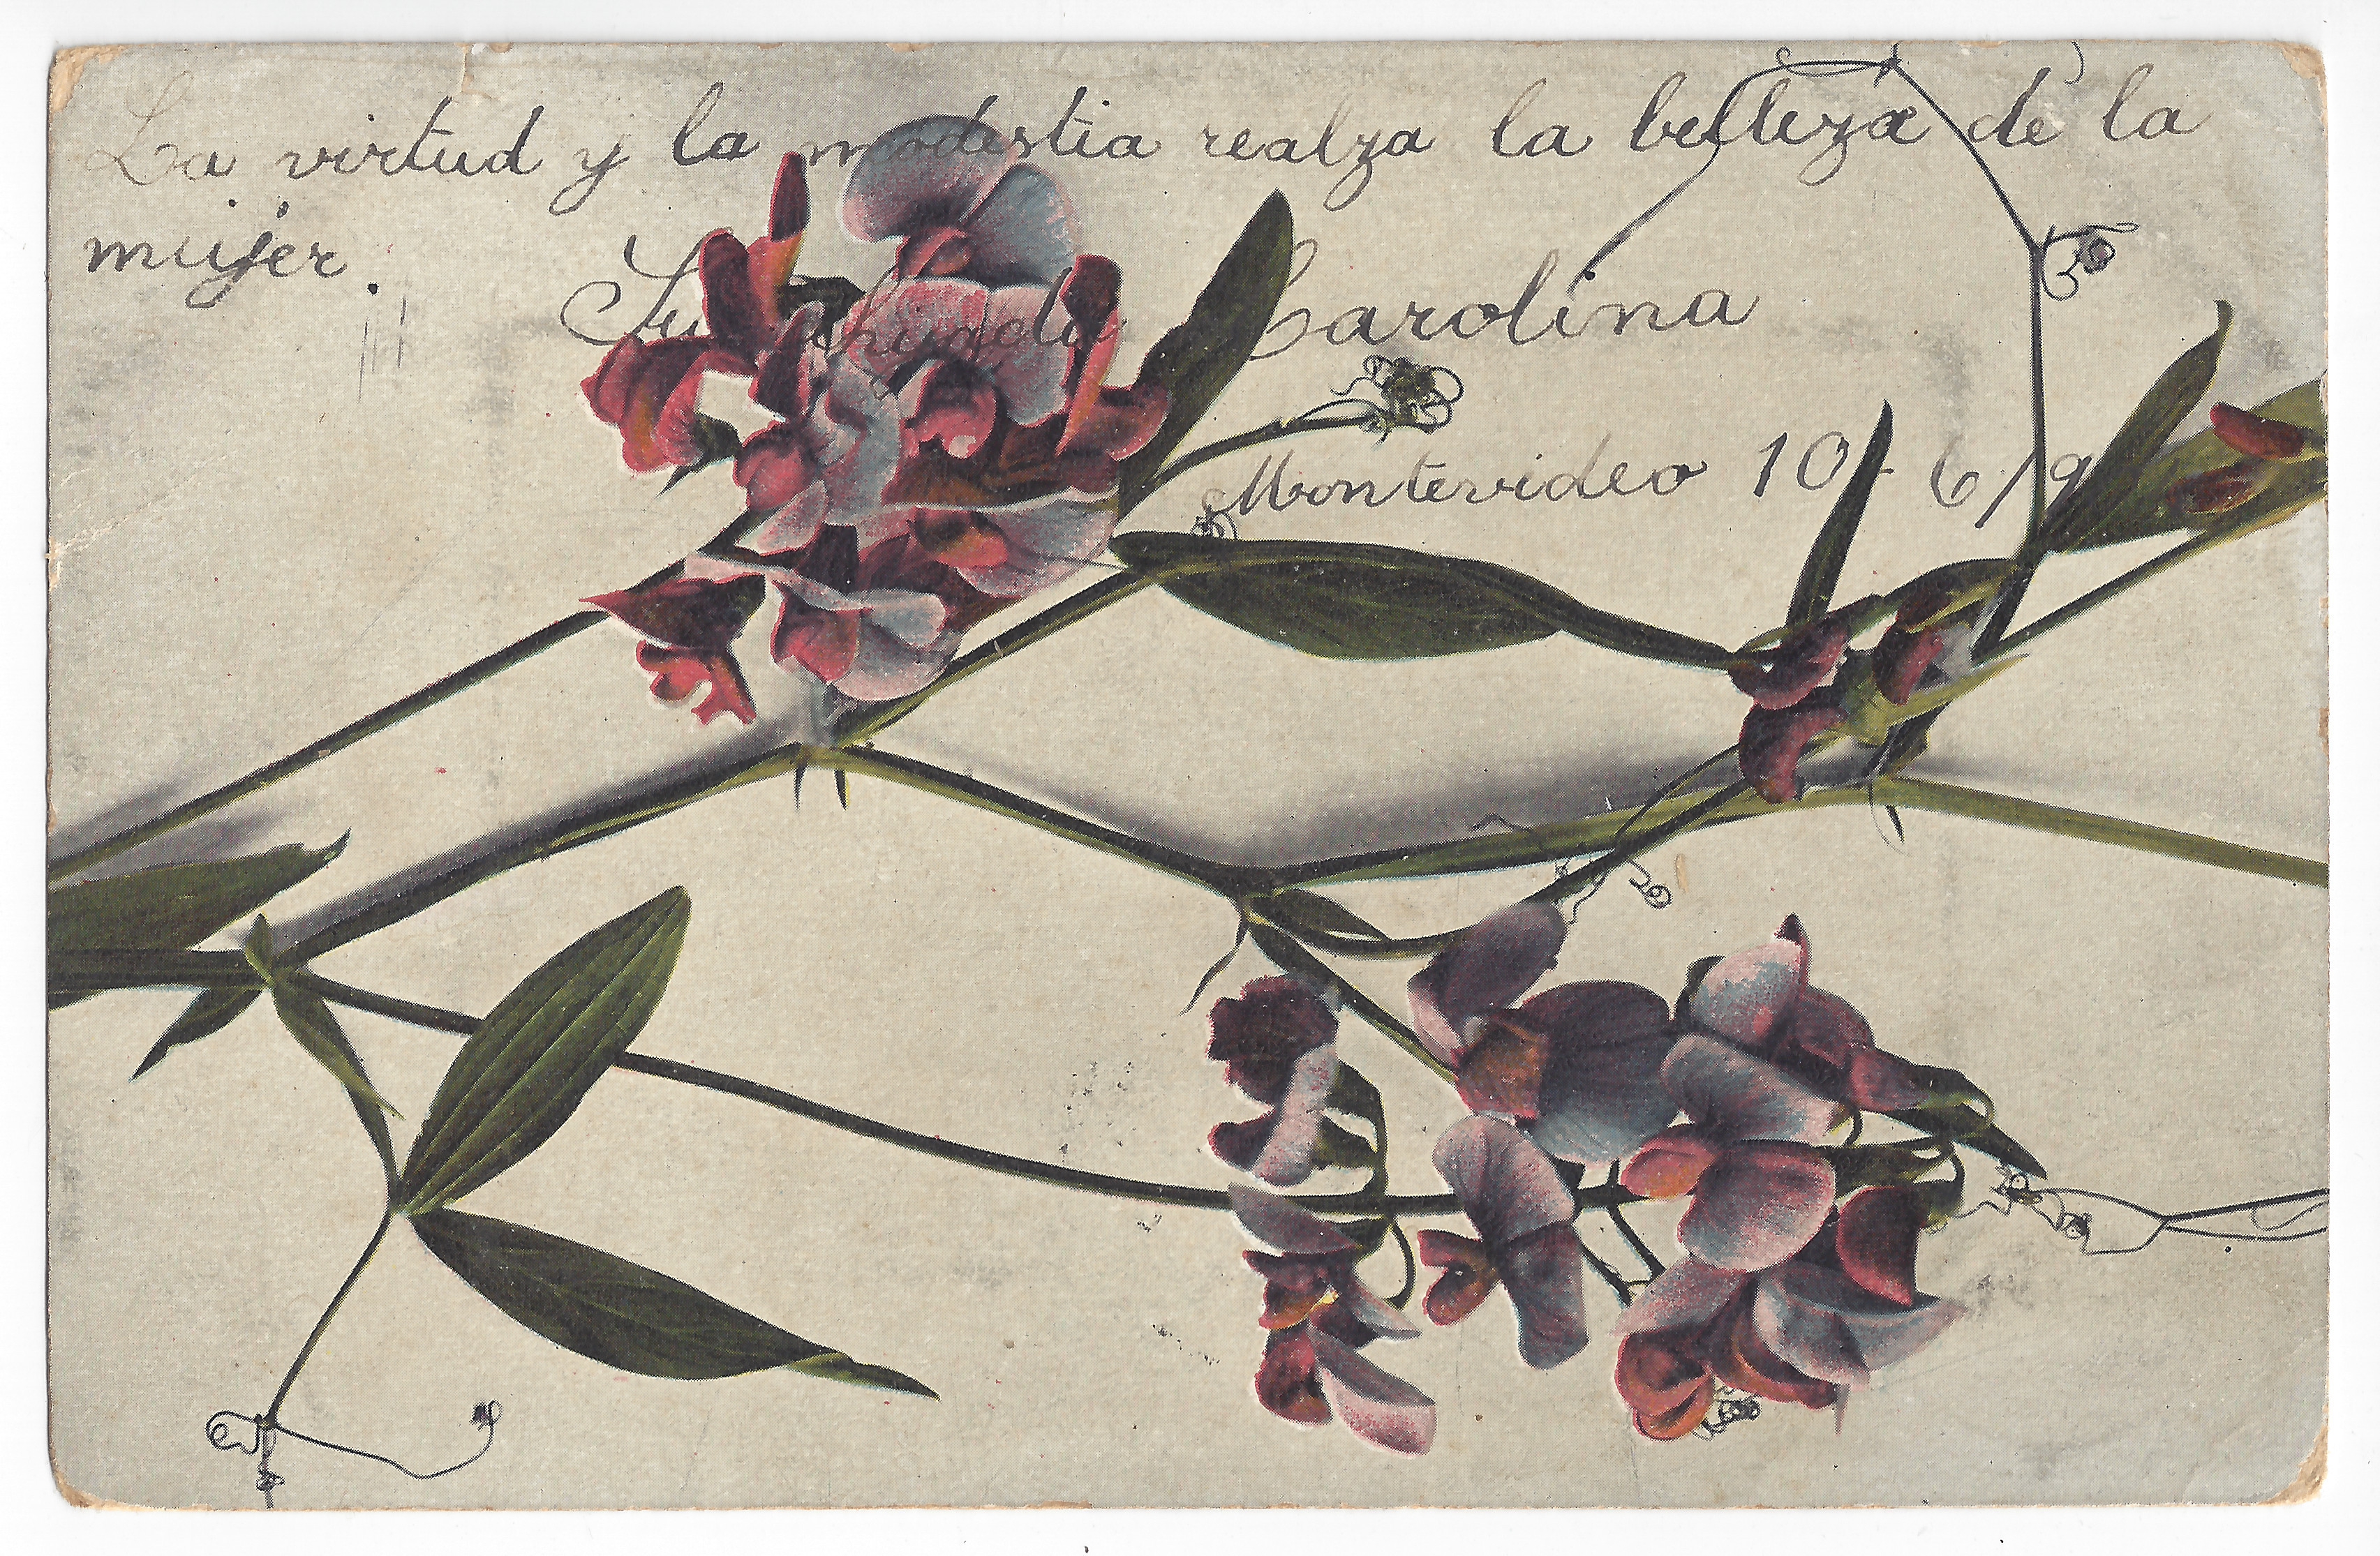 La virtud y la modestia realza la belleza de la
mujer.
Tu ahijada Carolina
Montevideo 10-6/9